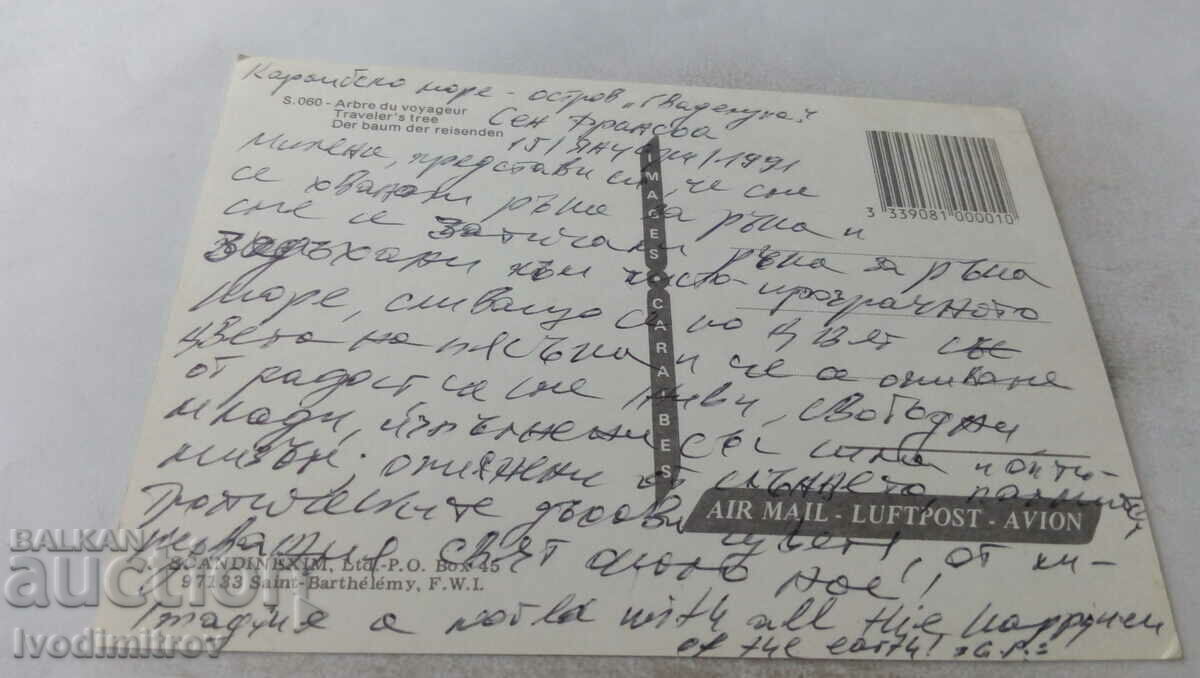 Карибско море - остров "Гваделупа"
S.060 - Arbre du voyageur
Traveler's tree
Der baum der reisenden
Сен Франсоа
15/Януари/1991
Милена, представи си, че сме
се хванали ръка за ръка и
сме се затичали ръка за ръка
задъхани към чисто-прозрачното
море, сливащо се по цвят със
цвета на пясъка и че са
от радост че сме живи, свободни
млади, изпълнени със сила и опти-
мизъм; опиянени от слънцето, палмите,
тропическите дървета, цветя, от
свят около нас!
with all the happiness
of the earth!
IMAGES CARAIBES
3 339081 000010
AIR MAIL - LUFTPOST - AVION
SCANDINEXIM, Ltd.-P.O. Box 45
97133 Saint-Barthélémy, F.W.I.
BALKAN
auction
Ivodimitrov